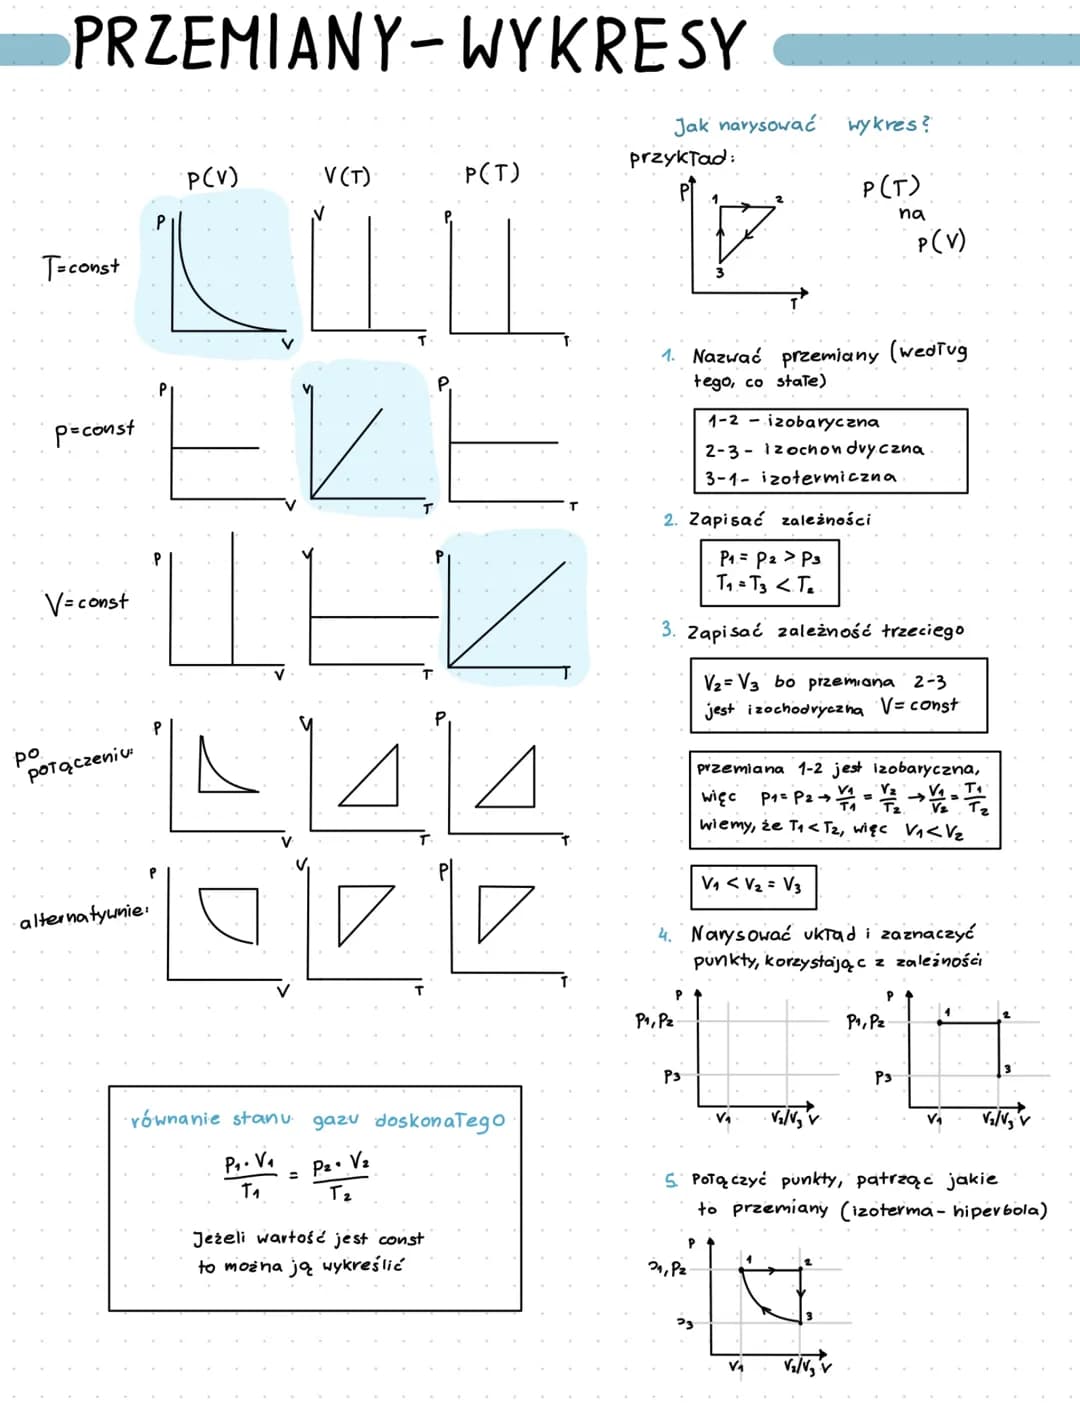 PRZEMIANY-WYKRESY
p(V)
V(T)
p(T)
T=const
P
V
V
T
P
T
p=const
P
V
V
T
P
T
V=const
P
V
V
T
P
T
po połączeniu:
P
V
V
T
P
T
alternatywnie:
P
V
V
T
P
T
równanie stanu gazu doskonałego
P₁·V₁/T₁ = P₂·V₂/T₂
Jeżeli wartość jest const
to można ją wykreślić
Jak narysować wykres?
przykład:
P
1
2
3
T
p(T)
na
p(V)
1. Nazwać przemiany (według
tego, co stałe)
1-2 - izobaryczna
2-3 - izochondryczna
3-1- izotermiczna
2. Zapisać zależności
P₁ = P₂ > P₃
T₁ = T₃ < T₂
3. Zapisać zależność trzeciego
V₂= V₃ bo przemiana 2-3
jest izochodryczna V= const
przemiana 1-2 jest izobaryczna,
więc P₁= P₂ → V₁/T₁ = V₂/T₂ → V₁/V₂ = T₁/T₂
wiemy, że T₁ < T₂, więc V₁ < V₂
V₁ < V₂ = V₃
4. Narysować układ i zaznaczyć
punkty, korzystając z zależności
P
P₁, P₂
P₃
V₁
V₂/V₃
V
P
P₁, P₂
P₃
1
2
3
V₁
V₂/V₃
V
5 Połączyć punkty, patrząc jakie
to przemiany (izoterma - hiperbola)
P
P₁, P₂
P₃
1
2
3
V₁
V₂/V₃
V